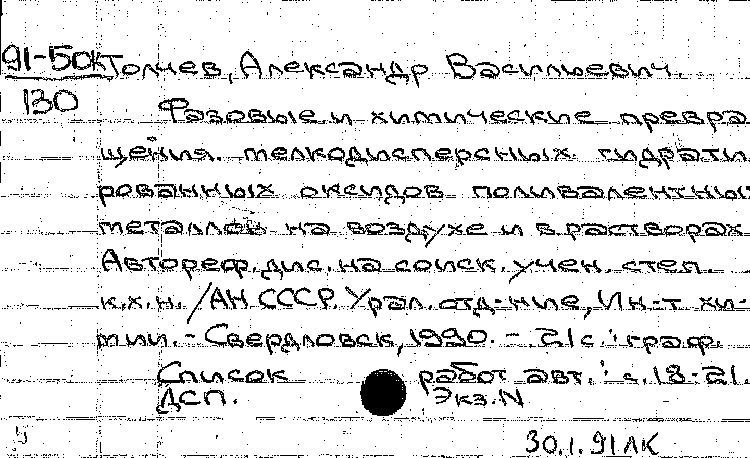 91-50к Толчев, Александр Васильевич.
130
Фазовые и химические превра
щения мелкодисперсных гидрати
рованных оксидов поливалентных
металлов на воздухе и в растворах
Автореф. дис. на соиск. учен. степ.
к.х.н. /АН СССР. Урал. отд-ние, Ин-т хи-
мии. - Свердловск, 1990. - 21 с. : граф.
Список работ авт. : с. 18-21.
ДСП. Экз. N
30.1.91 ЛК